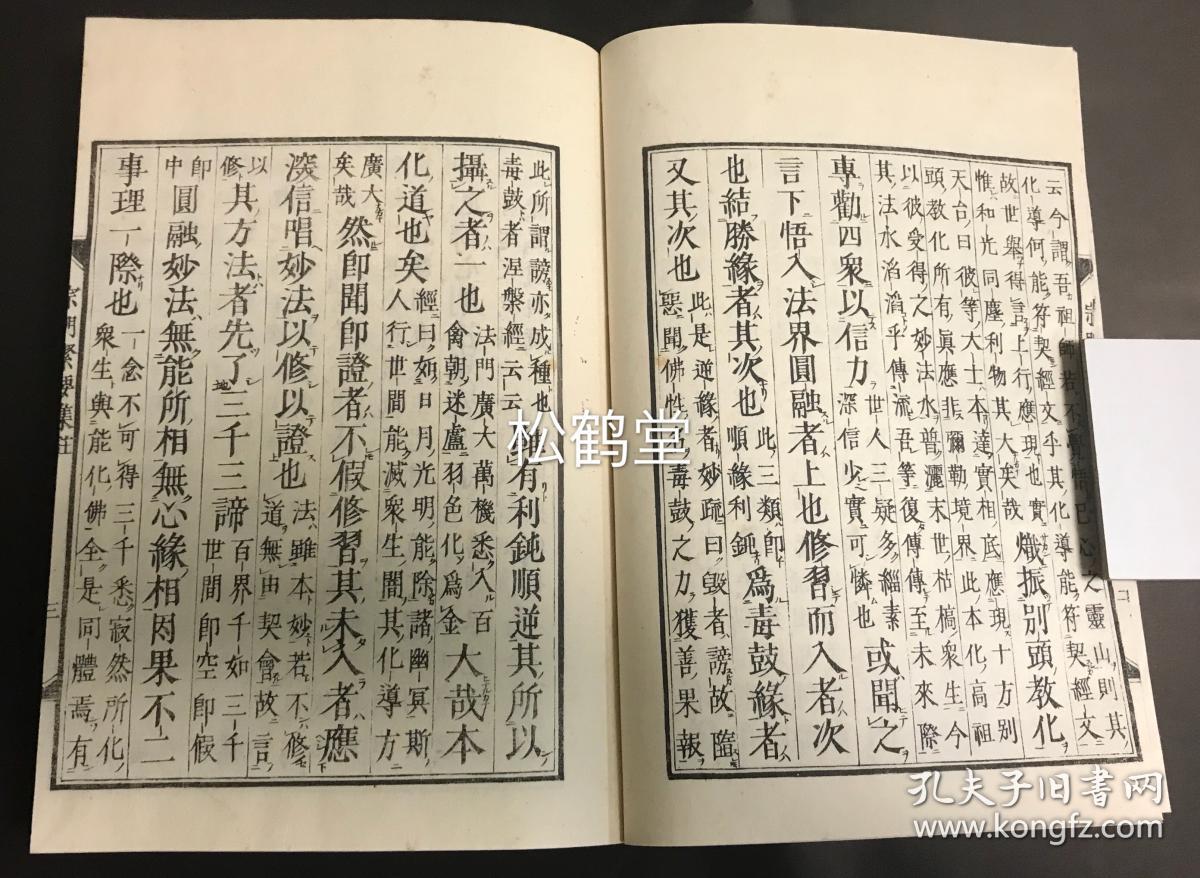 云今謂吾祖師若不
之靈山則其
化導何能符契經文乎其化導能符契經文
故世擧得言上行應現也實
熾振別頭教化
惟和光同塵利物其大矣哉
天台曰彼等大士本達實相底應現十方別
頭教化所有眞應非彌勒境界此本化高祖
以彼受得之妙法水普灑末世枯槁衆生今
其法水滔滔乎傳流吾等復傳傳至未來際
專勸四衆以信力
世人三疑多緇素
深信少實可憐也
或聞之
言下悟入法界圓融者上也修習而入者次
也結勝緣者其次也
此三類卽
順緣利鈍
爲毒鼓緣者
又其次也
此是逆緣者妙疏曰毀者謗故臨
惡聞佛性毒鼓之力獲善果報
此所謂謗亦成種也
毒鼓者涅槃經云云
雖有利鈍順逆其所以
攝之者一也
法門廣大萬機悉入百
禽朝迷盧羽色化爲金
大哉本
化道也矣
經曰如日月光明能除諸幽冥斯
人行世間能滅衆生闇其化導方
廣大
矣哉
然卽聞卽證者不假修習其未入者應
深信唱妙法以修以證也
法雖本妙若不修
道無由契會故言
以
修
其方法者先了三千三諦
百界千如三千
世間卽空卽假
卽
中
圓融妙法無能所相無心緣相因果不二
事理一際也
一念不可得三千悉寂然所化
衆生與能化佛全是同體焉有
松鹤堂
孔夫子旧书网
www.kongfz.com